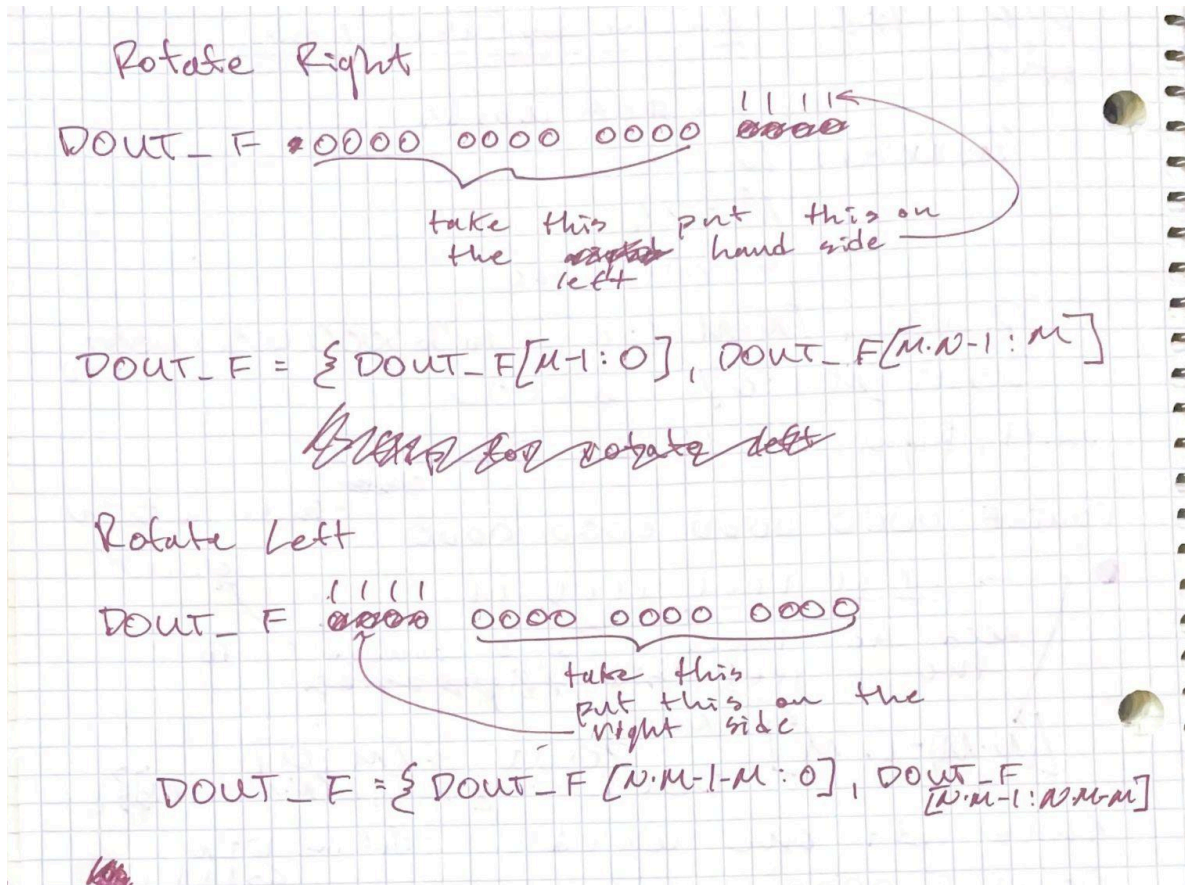 Rotate Right
1 1 1 1
DOUT_F 0000 0000 0000
take this put this on
the left hand side
DOUT_F = { DOUT_F[M-1:0], DOUT_F[M·N-1:M]
rotate left
Rotate Left
1 1 1 1
DOUT_F 0000 0000 0000 0000
take this
put this on the
right side
DOUT_F = { DOUT_F [N·M-1-M:0], DOUT_F
[N·M-1:N·M-M]